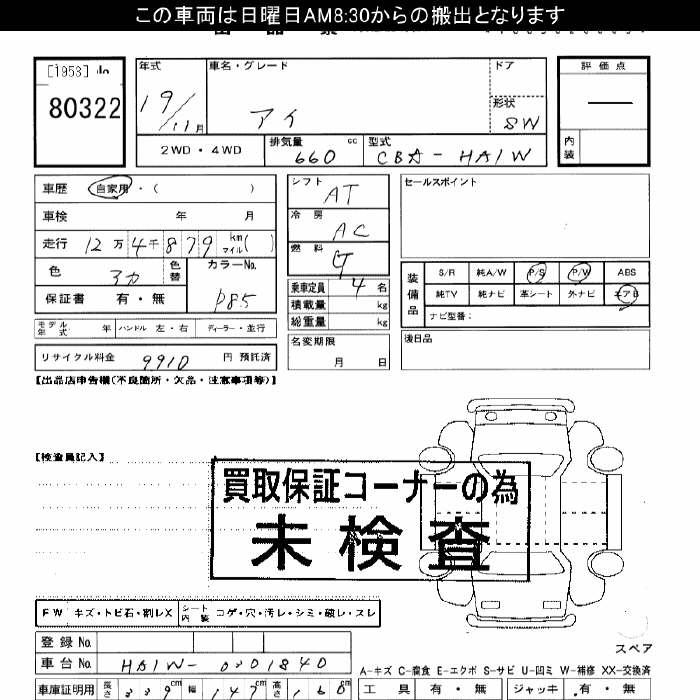 この車両は日曜日AM8:30からの搬出となります
[1953]
80322
年式 車名・グレード ドア 評価点
19/11月 アイ 形状 SW
2WD・4WD 排気量 660 cc 型式 CBA-HA1W 内装
車歴 自家用・( ) シフト AT セールスポイント
車検 年 月 冷房 AC
走行 12万4千879 km マイル( ) 燃料 G
色 アカ 色替 カラーNo. P85 乗車定員 4名
保証書 有・無 積載量 kg
総重量 kg
装備品 S/R 純A/W P/S P/W ABS
純TV 純ナビ 革シート 外ナビ エアB
ナビ型番:
モデル年式 年 ハンドル 左・右 ディーラー・並行 名変期限 月 日 後日品
リサイクル料金 9910 円 預託済
【出品店申告欄(不良箇所・欠品・注意事項等)】
【検査員記入】
買取保証コーナーの為
未検査
FW キズ・トビ石・割レX シート内装 コゲ・穴・汚レ・シミ・破レ・スレ
登録No.
車台No. HA1W-0301840
スペア
A-キズ C-腐食 E-エクボ S-サビ U-凹ミ W-補修 XX-交換済
車庫証明用 長さ 339cm 幅 147cm 高さ 160cm 工具 有・無 ジャッキ 有・無